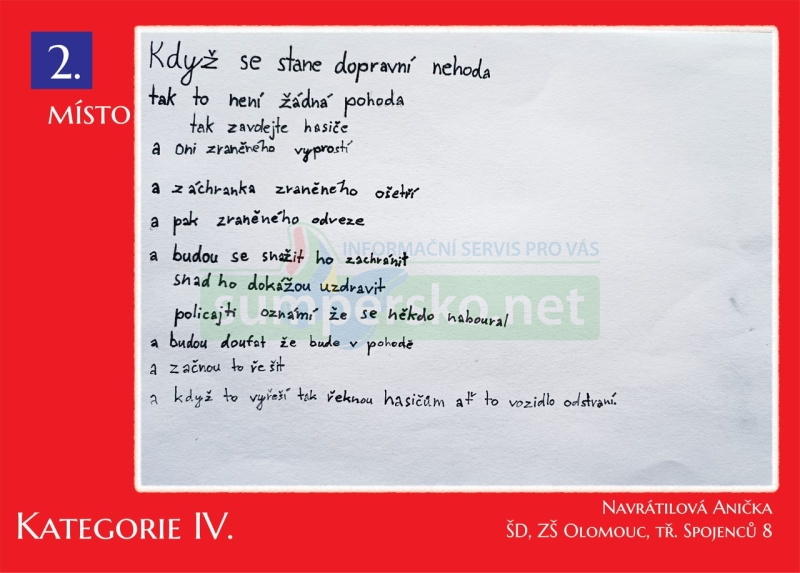 2.
MÍSTO
Když se stane dopravní nehoda
tak to není žádná pohoda
tak zavolejte hasiče
a oni zraněného vyprostí
a záchranka zraněného ošetří
a pak zraněného odveze
a budou se snažit ho zachránit
INFORMAČNÍ SERVIS PRO VÁS
snad ho dokážou uzdravit
sumpersko.net
policajti oznámí že se někdo naboural
a budou doufat že bude v pohodě
a začnou to řešit
a když to vyřeší tak řeknou hasičům ať to vozidlo odstraní.
KATEGORIE IV.
NAVRÁTILOVÁ ANIČKA
ŠD, ZŠ OLOMOUC, TŘ. SPOJENCŮ 8